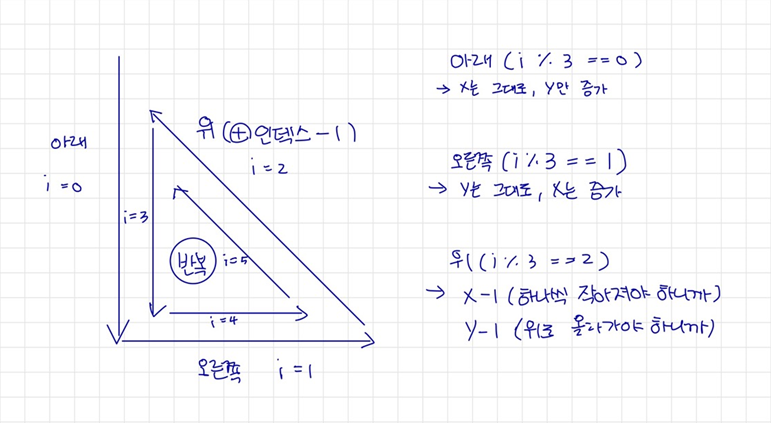 아래
i = 0
위 (⊕인덱스 - 1)
i = 2
i = 3
반복
i = 5
i = 4
오른쪽 i = 1
아래 (i % 3 == 0)
→ X는 그대로, Y만 증가
오른쪽 (i % 3 == 1)
→ Y는 그대로, X는 증가
위 (i % 3 == 2)
→ X-1 (하나씩 작아져야 하니까)
Y-1 (위로 올라가야 하니까)